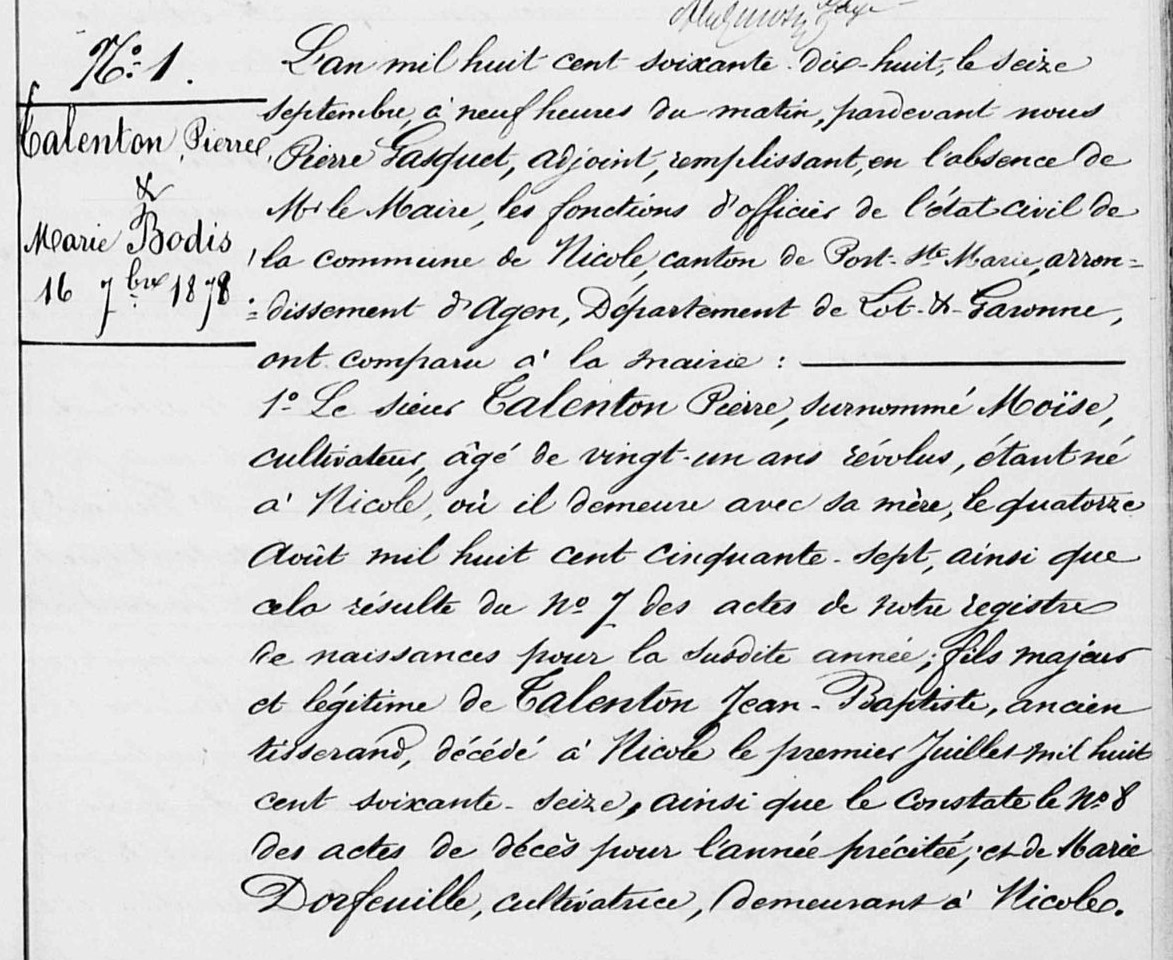 N.o 1.
Talenton Pierre
&
Marie Bodis
16 7bre 1878
L'an mil huit cent soixante-dix-huit, le seize
septembre, à neuf heures du matin, pardevant nous
Pierre Gasquet, adjoint, remplissant, en l'absence de
Mr le Maire, les fonctions d'officier de l'état civil de
la commune de Nicole, canton de Port-Ste Marie, arron=
=dissement d'Agen, Département de Lot-&-Garonne,
ont comparu à la mairie :
1o Le sieur Talenton Pierre, surnommé Moïse,
cultivateur, âgé de vingt-un ans révolus, étant né
à Nicole, où il demeure avec sa mère, le quatorze
Août mil huit cent cinquante-sept, ainsi que
cela résulte du No 7 des actes de notre registre
de naissances pour la susdite année; fils majeur
et légitime de Talenton Jean-Baptiste, ancien
tisserand, décédé à Nicole le premier Juillet mil huit
cent soixante-seize, ainsi que le constate le No 8
des actes de décès pour l'année précitée; et de Marie
Dorfeuille, cultivatrice, demeurant à Nicole.